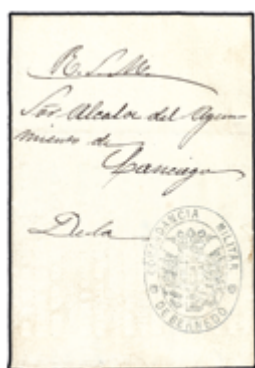 R. S. M.
Sor Alcalde del Ayun-
miento de
Lanciego
De la
COMANDANCIA MILITAR
DE BERNEDO